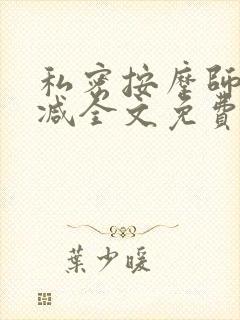 私密按摩師
减全文免費
葉少暖